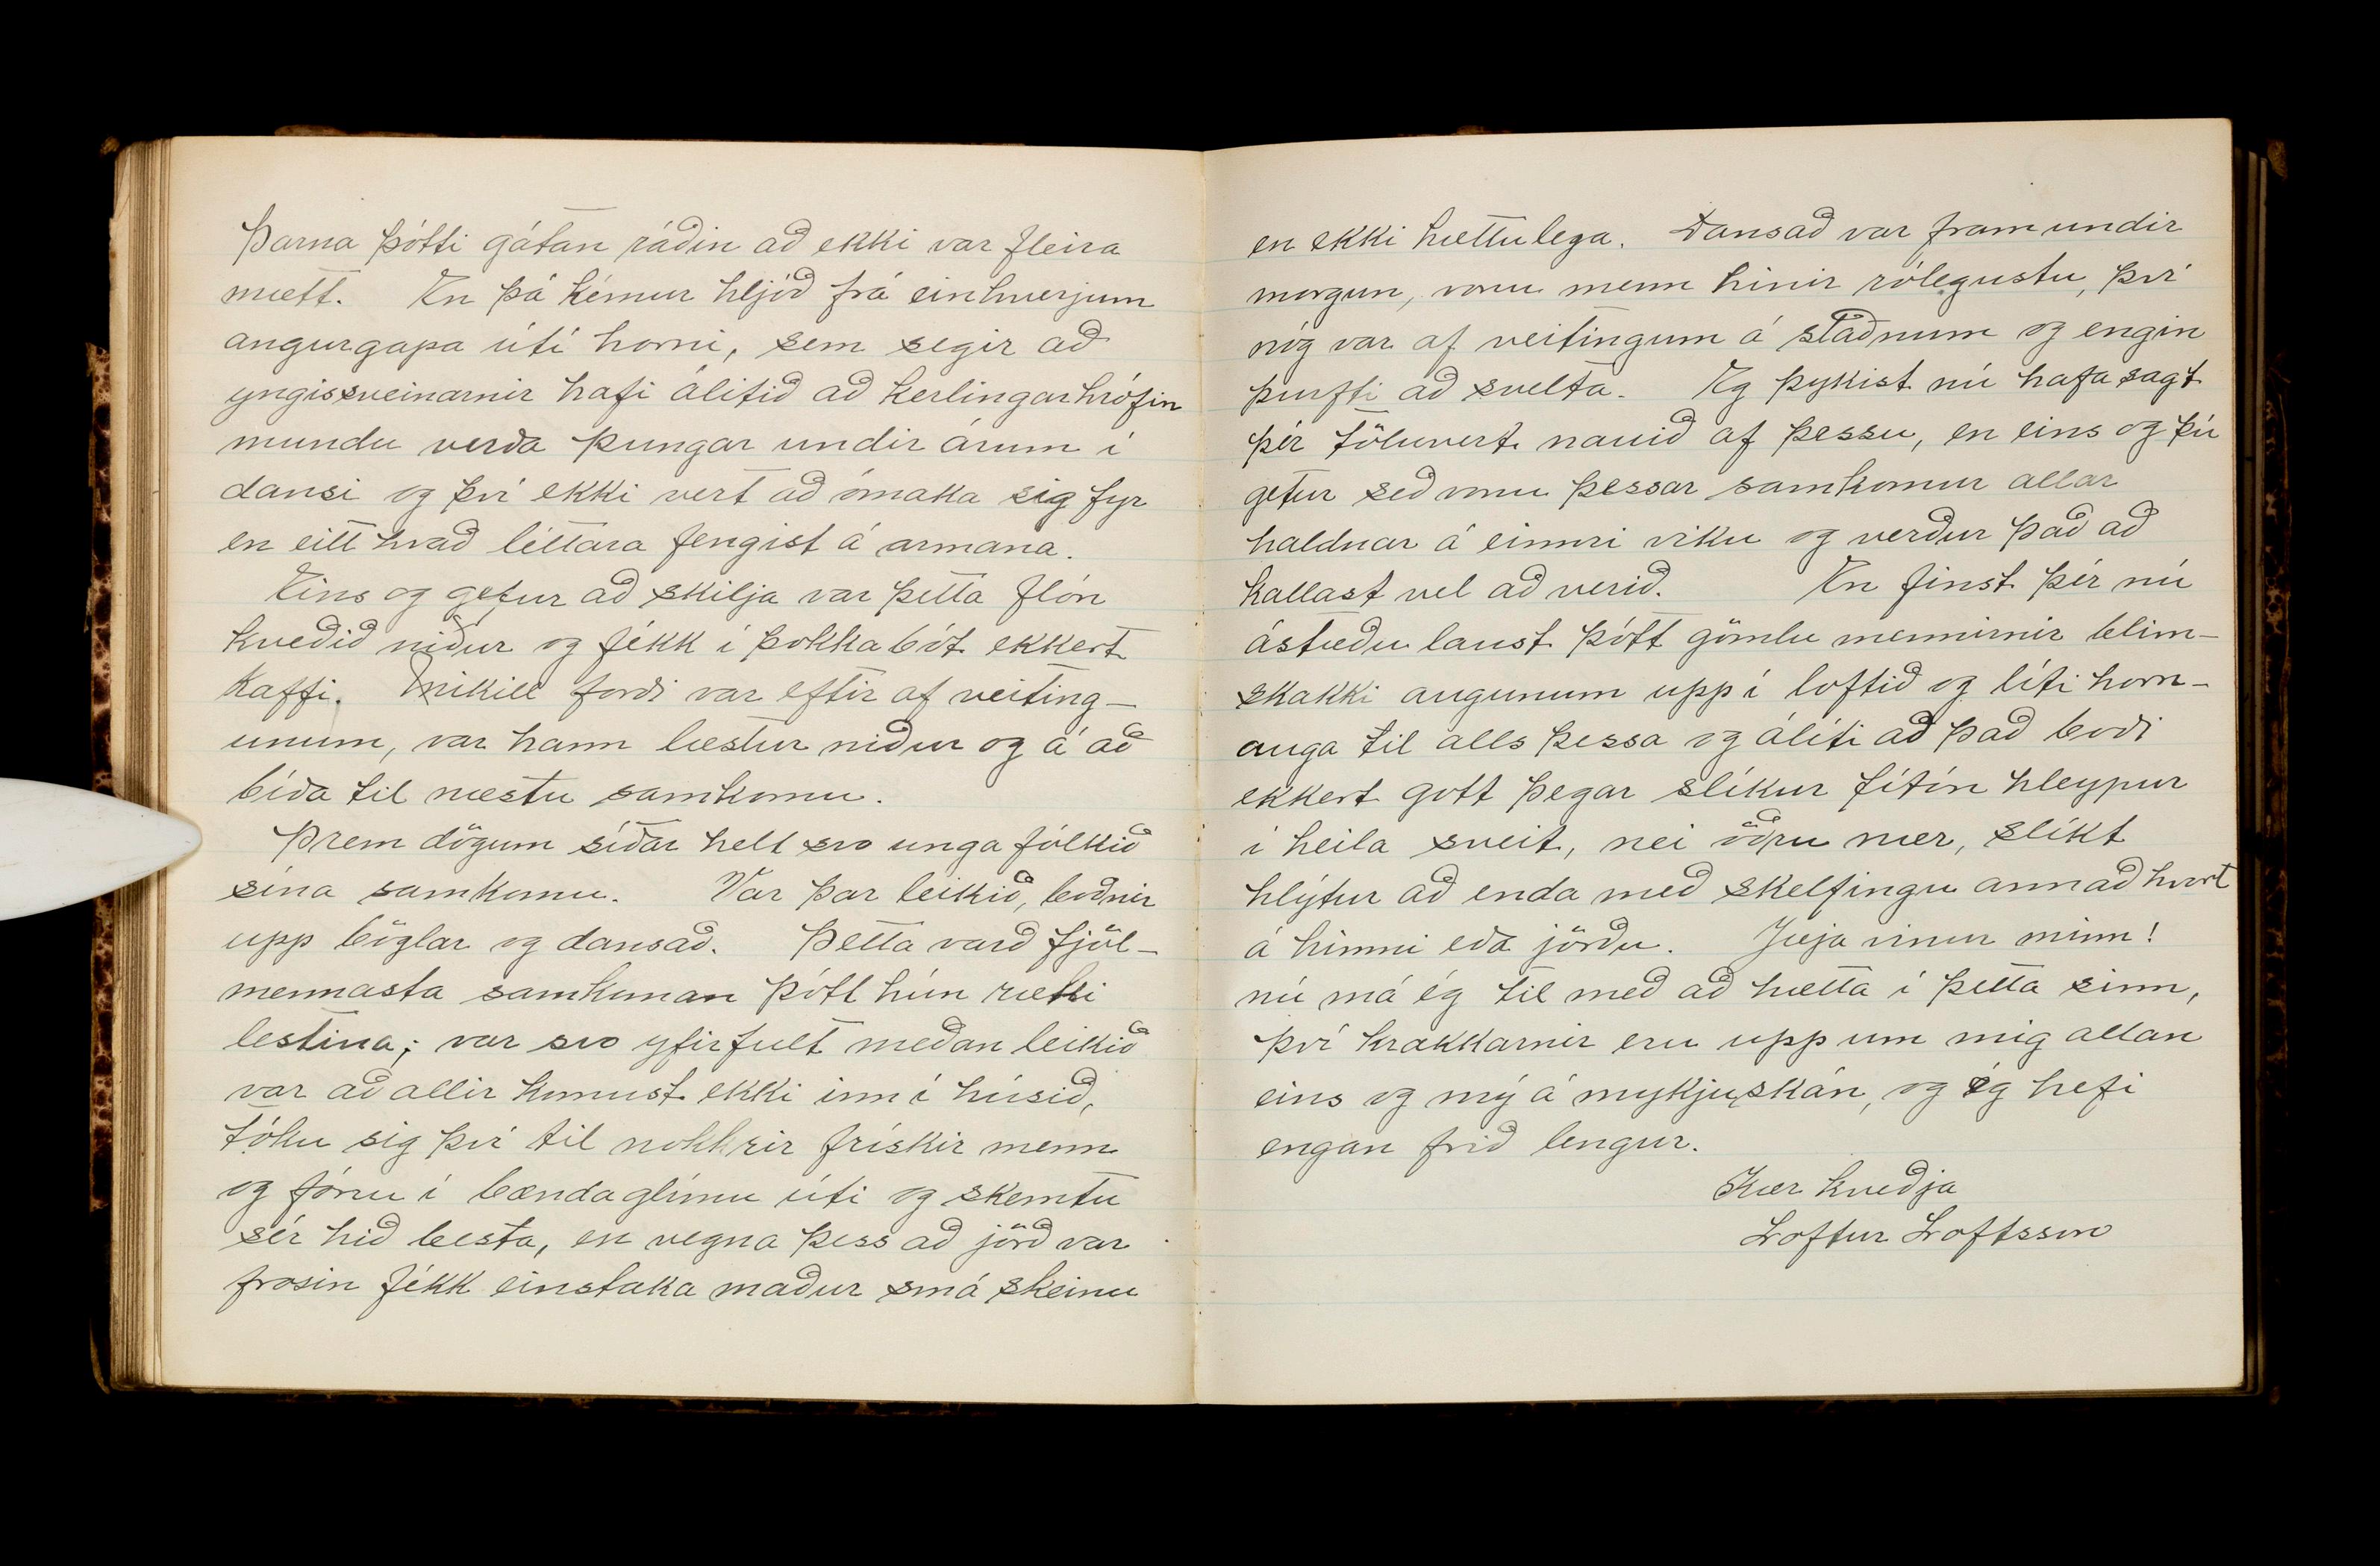 Þarna þótti gátan ráðin að ekki var fleira
mætt. En þá kémur hljóð frá einhverjum
angurgapa úti horni, sem segir að
yngissveinarnir hafi álitið að kerlingarhrófin
mundu verða þungar undir árum í
dansi og því ekki vert að ómaka sig fyr
en eitthvað léttara fengist á armana.
Eins og getur að skilja var þetta flón
kveðið niður og fékk í þokkabót ekkert
kaffi. Mikill forði var eftir af veiting-
unum, var hann læstur niður og á að
bíða til næstu samkomu.
Þrem dögum síðar helt svo unga fólkið
sína samkomu. Var þar leikið, boðnir
upp böglar og dansað. Þetta varð fjöl-
mennasta samkoman þótt hún ræki
lestina; var svo yfirfult meðan leikið
var að allir komust ekki inn í húsið,
tóku sig því til nokkrir frískir menn
og fóru í bændaglímu úti og skemtu
sér hið besta, en vegna þess að jörð var
frosin fékk einstaka maður smá skeinu
en ekki hættulega. Dansað var fram undir
morgun, voru menn hinir rólegustu, því
nóg var af veitingum á staðnum og engin
þurfti að svelta. Eg þykist nú hafa sagt
þér töluvert nauið af þessu, en eins og þú
getur seð voru þessar samkomur allar
haldnar á einni viku og verður það að
kallast vel að verið. En finst þér nú
ástæðu laust þótt gömlu mennirnir blim-
skakki augunum upp í loftið og líti horn-
auga til alls þessa og álíti að það boði
ekkert gott þegar slíkur fítón hleypur
í heila sveit, nei öðru nær, slíkt
hlýtur að enda með skelfingu annað hvort
á himni eða jörðu. Jæja vinur minn!
nú má ég til með að hætta í þetta sinn,
því krakkarnir eru upp um mig allan
eins og mý á mykjuskán, og ég hefi
engan frið lengur.
Kær kveðja
Loftur Loftsson